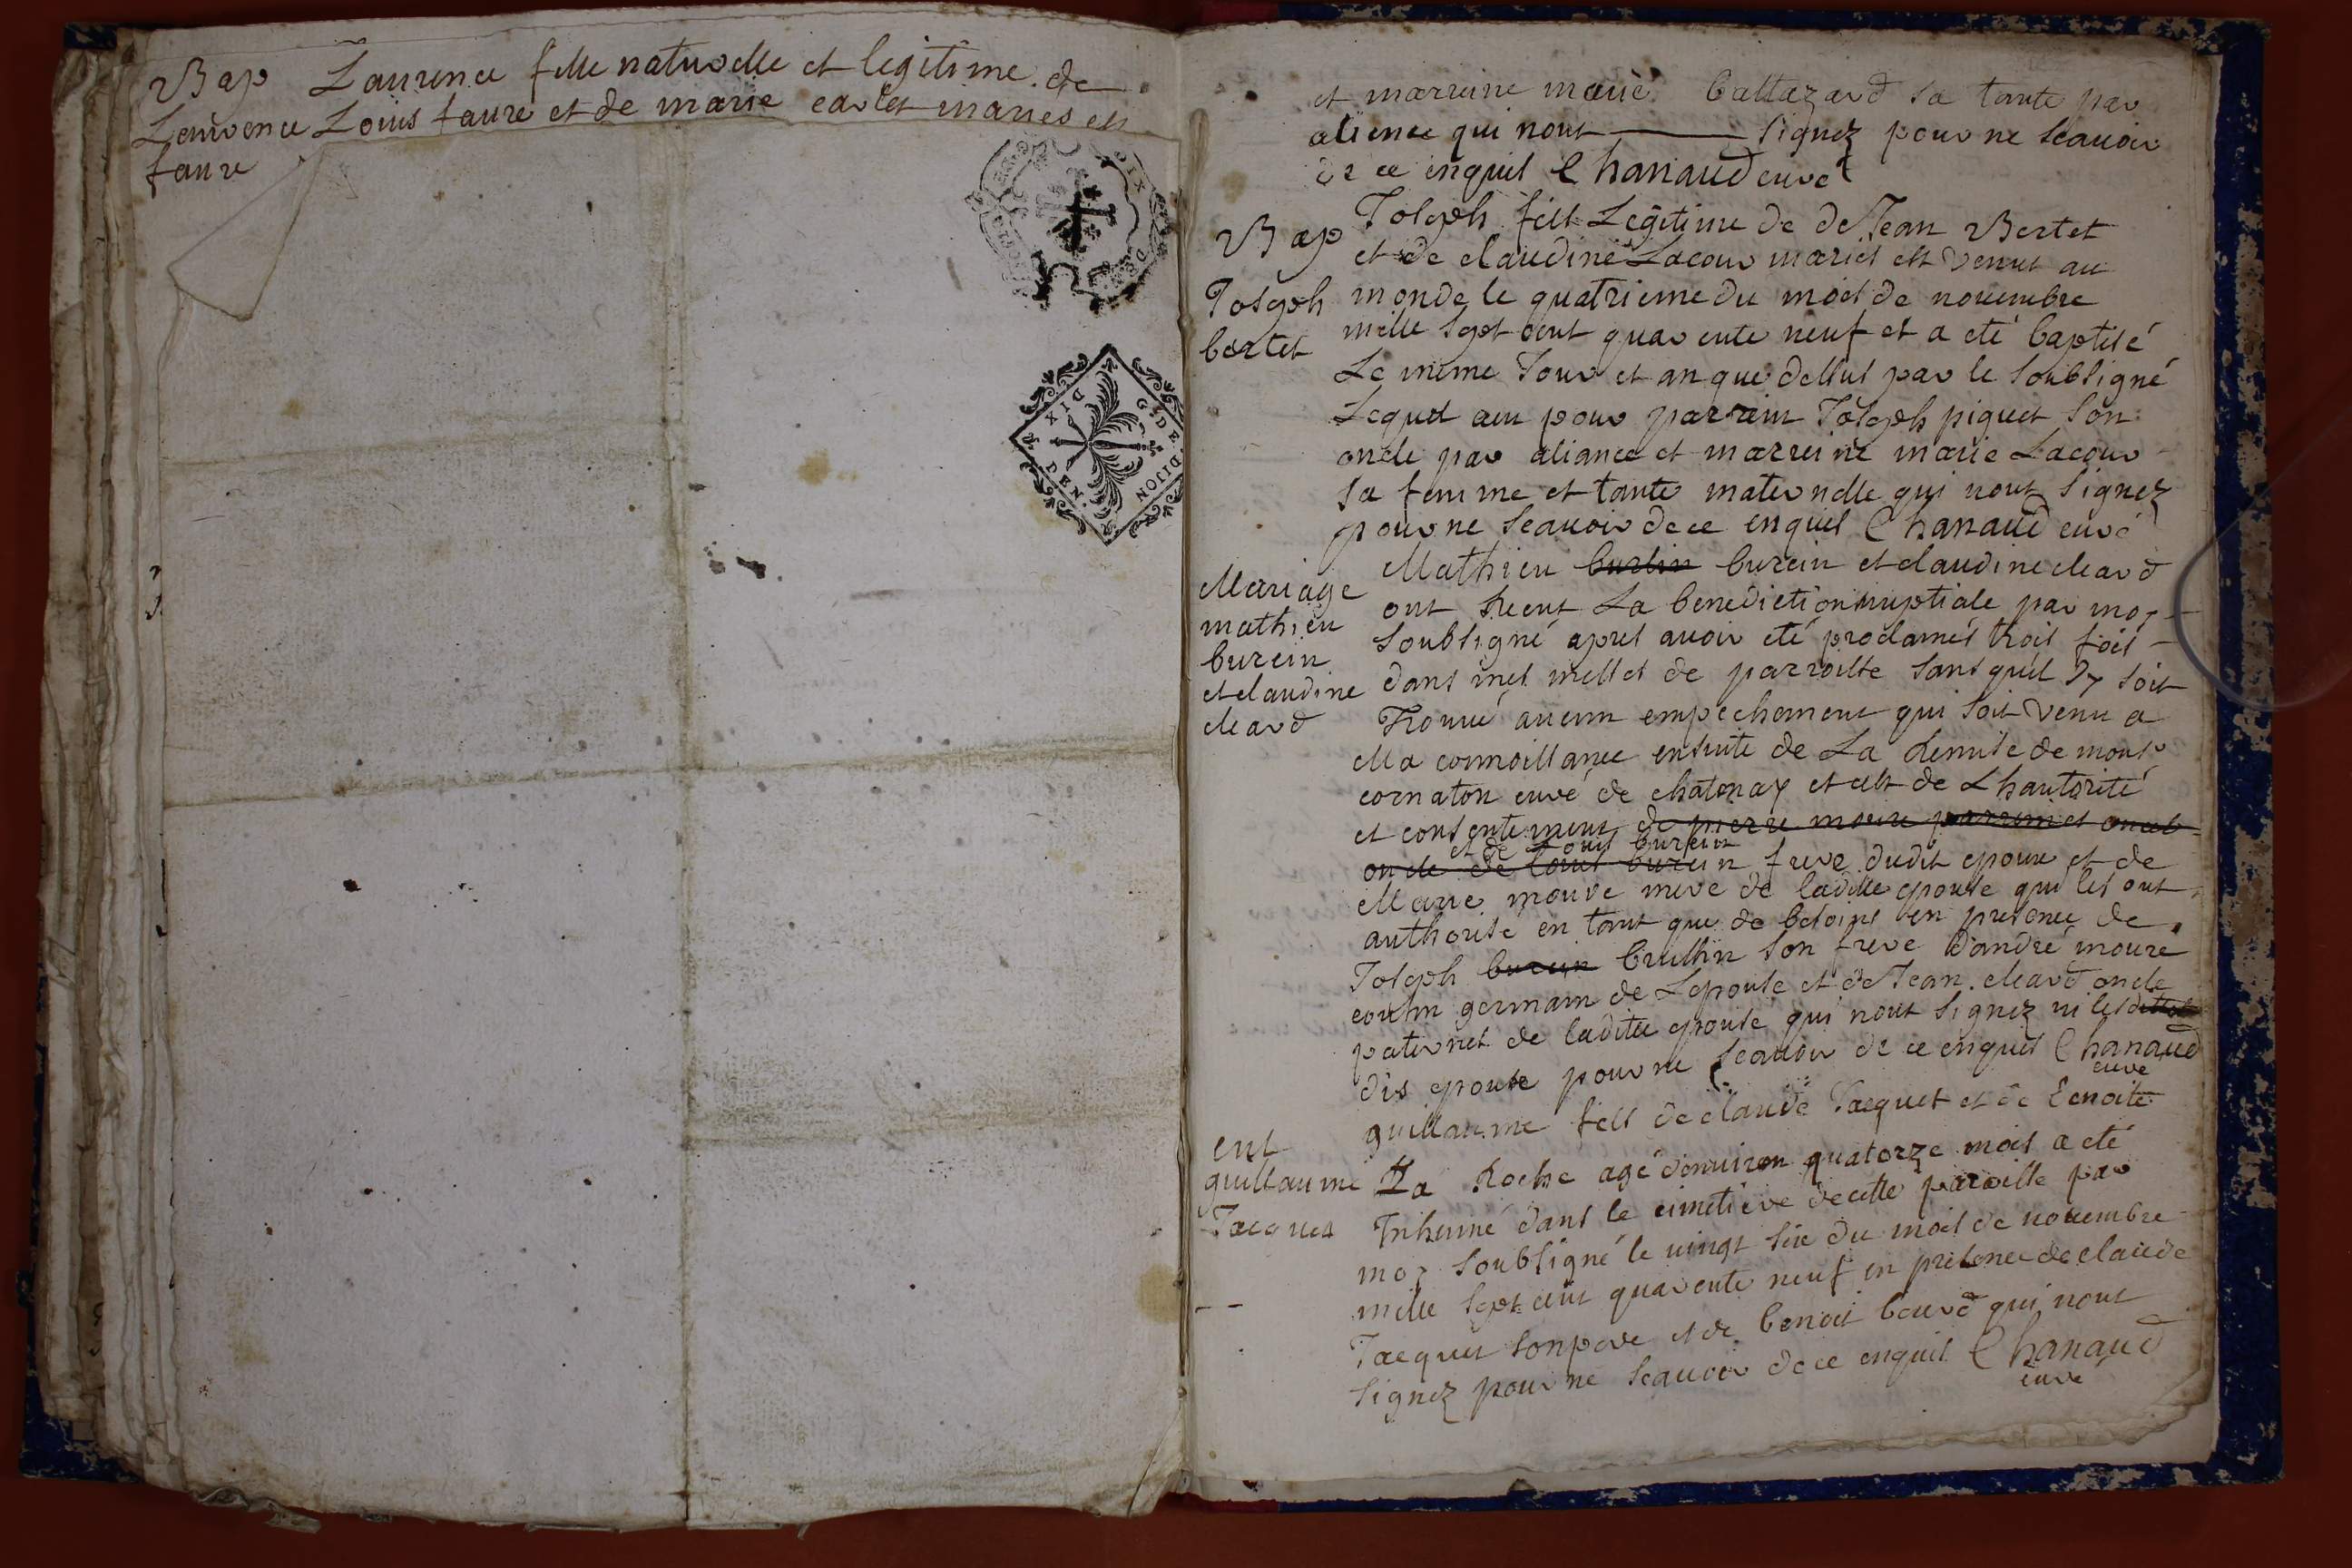 Bap Laurence fille naturelle et legitime de
Laurence Louis faure et de marie carlet mariés est
faure
DIX DEN
G. DE DIJON
DIX DEN
et marreine marie baltazard sa tante par
alience qui nont signez pour ne scauoir
de ce enquis Chanaud curé
Bap
Joseph
bertet
Joseph fils Legitime de de Jean Bertet
et de claudine Lacour mariés est venut au
monde le quatrieme du mois de nouembre
mille sept cent quarente neuf et a eté baptisé
Le même Jour et an que dessus par le soubsigné
Lequel a eu pour parrain Joseph piquet son
oncle par aliance et marreine marie Lacour
sa femme et tante maternelle qui nont signez
pour ne scauoir de ce enquis Chanaud curé
Mariage
mathieu
burein
et claudine
cleard
Mathieu burlin burein et claudine cleard
ont Receut La benediction nuptiale par moy
soubsigné apres auoir eté proclamés trois fois
dans mes messes de parroisse sans quil Jy soit
Trouué aucun empechement qui soit venu a
Ma connoissance ensuite de La Remise de monsr
cornaton curé de chatenay et cest de Lhautorité
et consentement de pierre moure parrein et oncle
et de Louis burein
oncle de Louis burein frere dudit epoux et de
Marie moure mere de ladite epouse qui les ont
authorisé en tant que de besoins en presence de
Joseph burein brullin son frere d'andré moure
cousin germain de Lepouse et de Jean cleard oncle
paternel de ladite epouse qui nont signez ni les
dis epouse pour ne scauoir de ce enquis Chanaud
curé
ent
guillaume
Jacquet
guillaume fils de claude Jacquet et de benoite
La Roche agé d'enuiron quatorze mois a eté
Inhumé dans le cimetiere de cette paroisse par
moy soubsigné le vingt six du mois de nouembre
mille sept cent quarente neuf en presence de claude
Jacquet son pere et de benoit beurd qui nont
signez pour ne scauoir de ce enquis Chanaud
curé